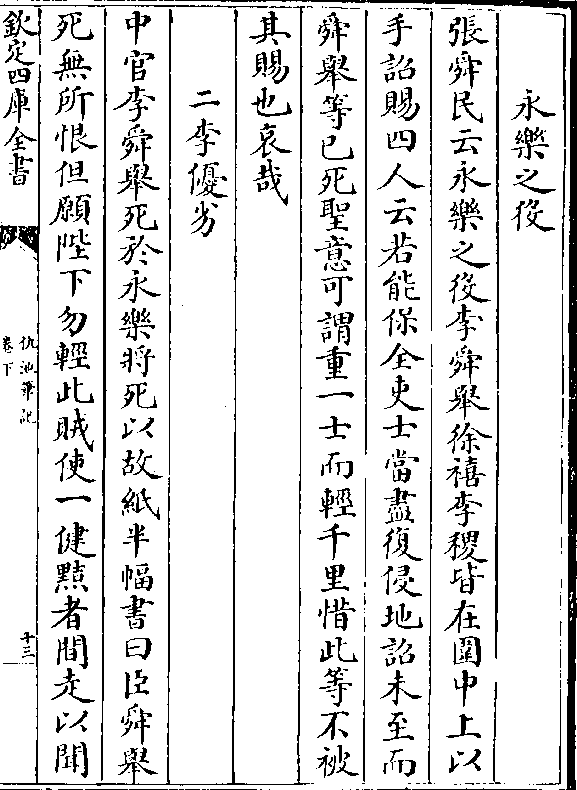 永樂之役
張舜民云永樂之役李舜舉徐禧李稷皆在圍中上以
手詔賜四人云若能保全吏士當盡復侵地詔未至而
舜舉等已死聖意可謂重一士而輕千里惜此等不被
其賜也哀哉
二李優劣
中官李舜舉死於永樂將死以故紙半幅書曰臣舜舉
死無所恨但願陛下勿輕此賊使一健黠者間走以聞
欽定四庫全書
仇池筆記
卷下
十三